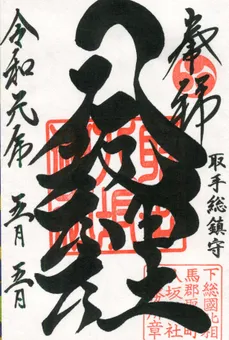 奉拝
取手総鎮守
八坂神社
令和元年 五月 五日
下総國北相
馬郡取手町
八坂神社